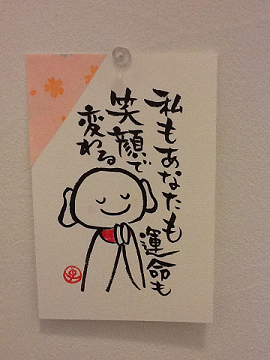 私もあなたも
運命も
笑顔で
変わる